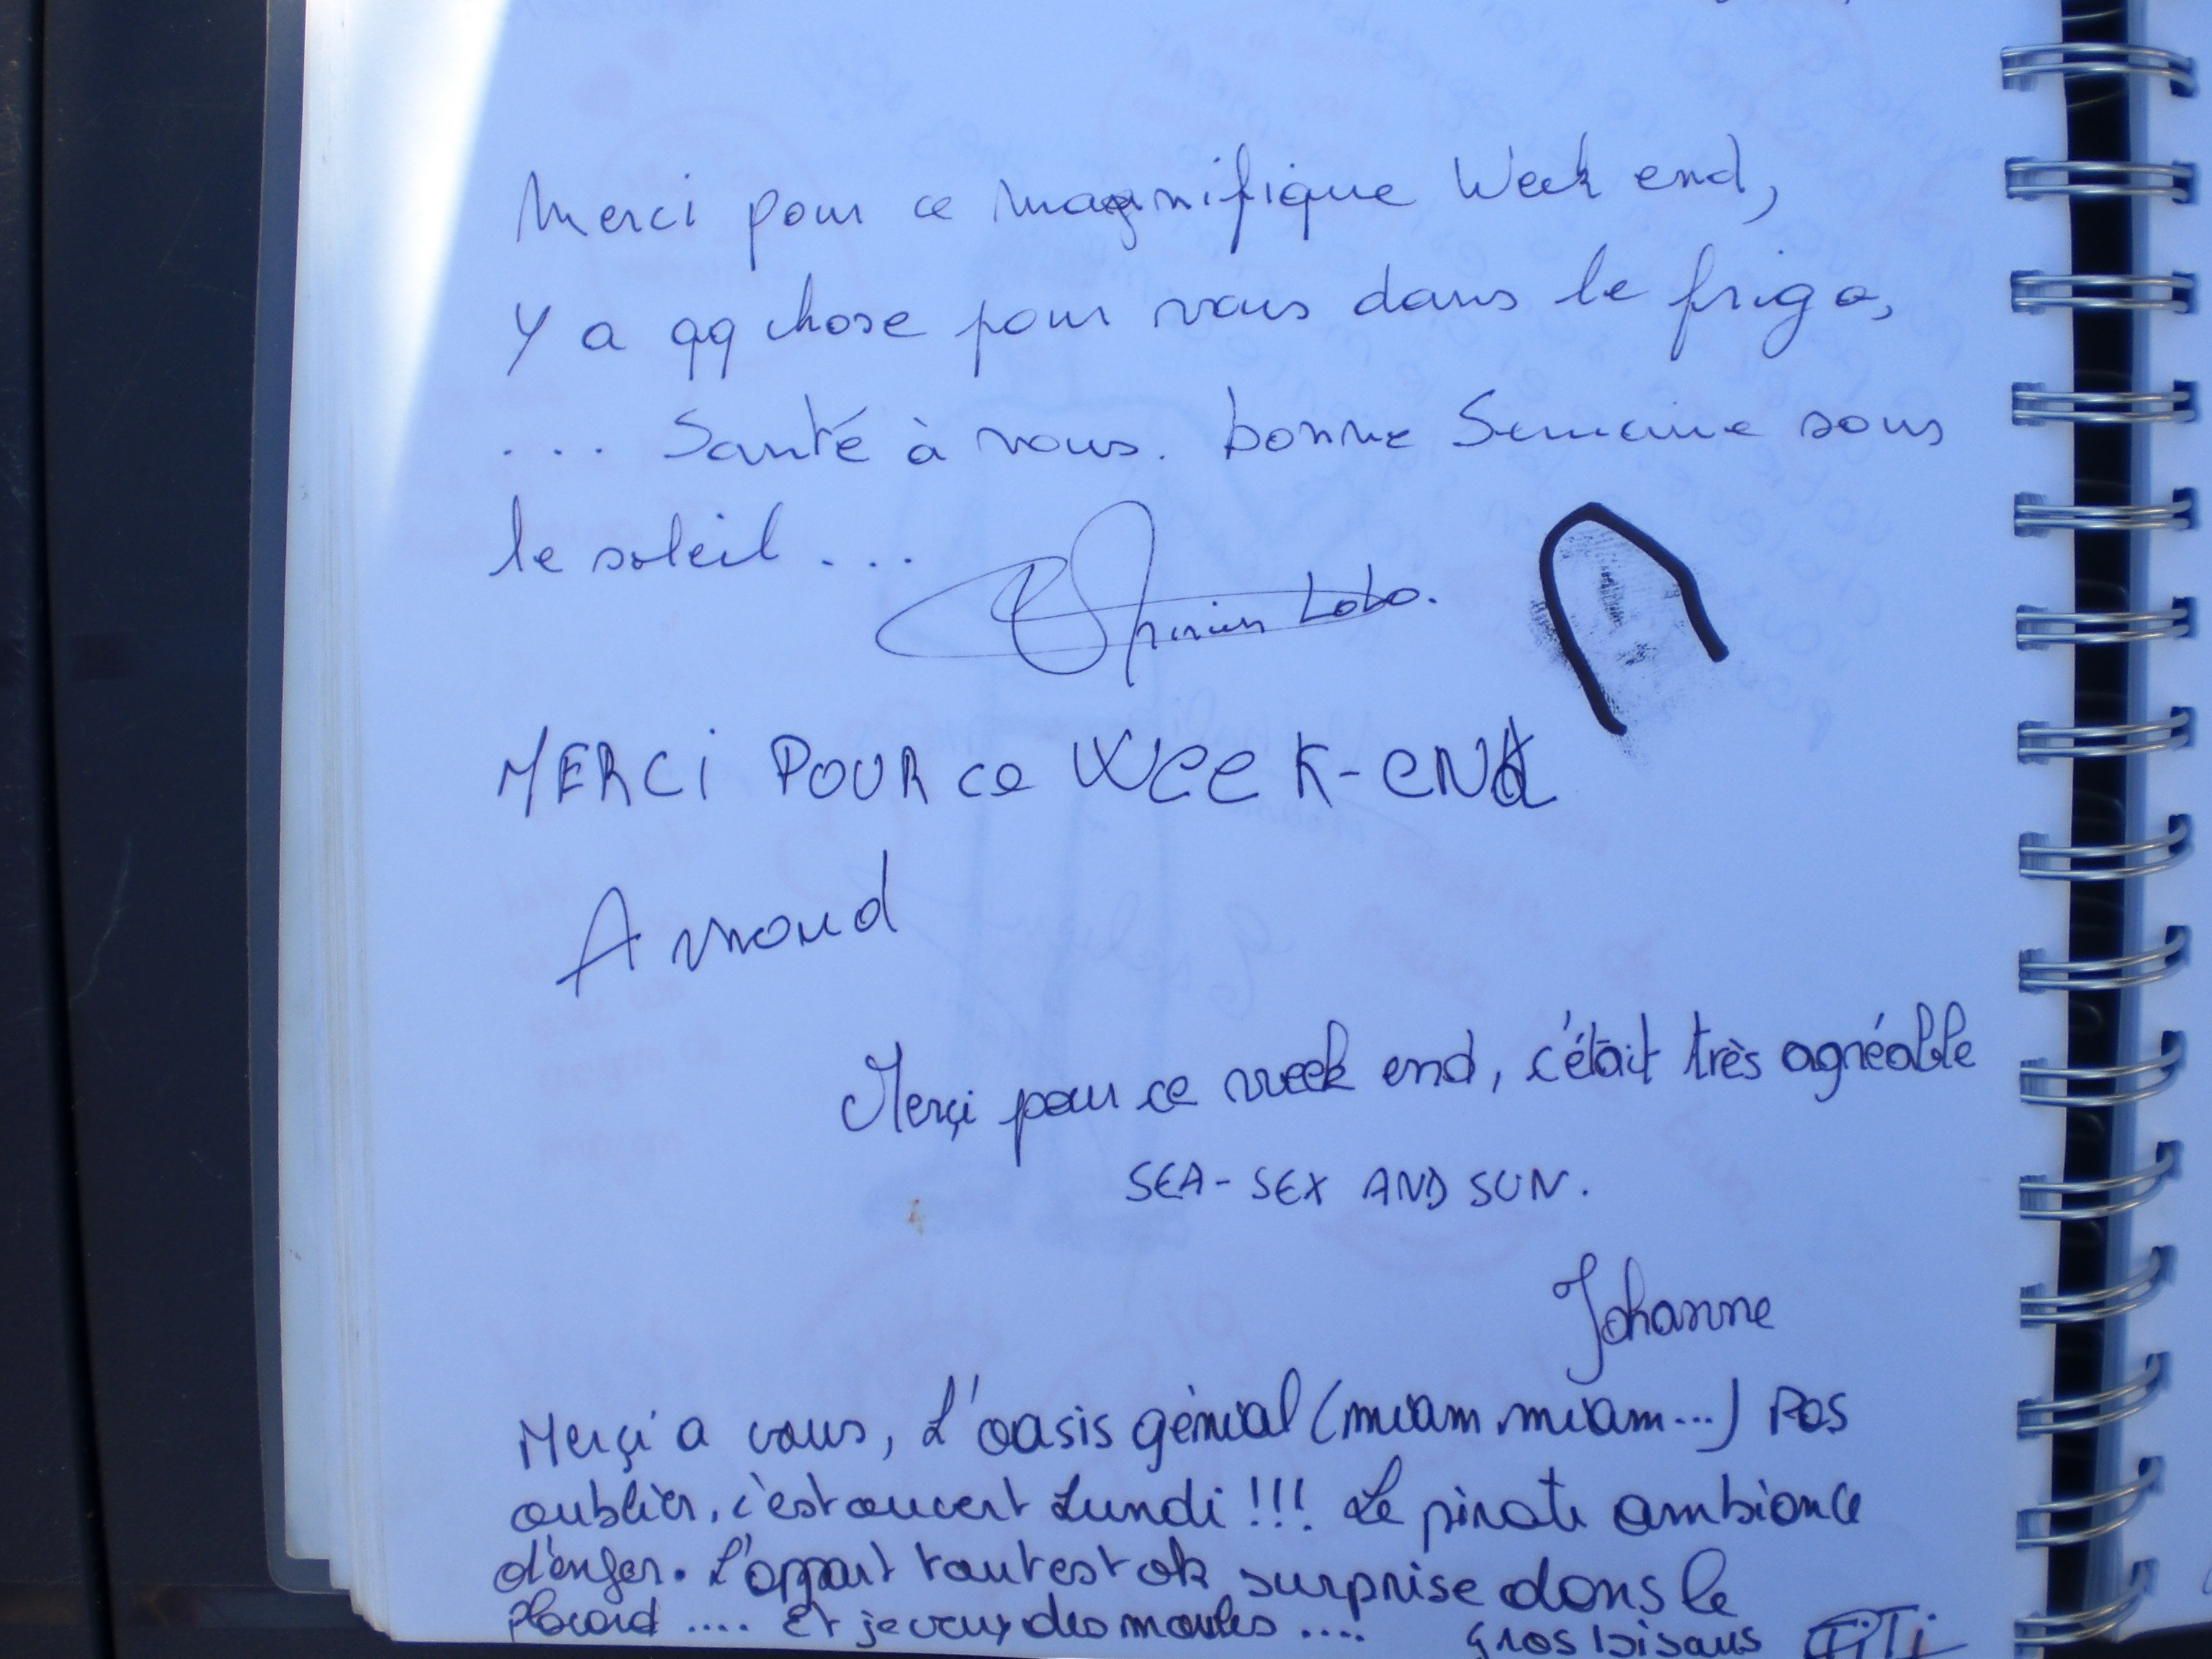 Merci pour ce magnifique Week end,
Y a qq chose pour vous dans le frigo,
.... Santé à vous. bonne Semaine sous
le soleil ...
Lobo.
MERCI POUR ce Week-end
Arnoud
Merçi pour ce week end, c'était très agréable
SEA - SEX AND SUN.
Johanne
Merçi a vous, L'oasis génial (miam miam...) Pas
oublier, c'est ouvert Lundi !!! Le pirate ambiance
d'enfer. L'appart tout est ok, surprise dans le
Placard .... Et je veux des moules ....
gros bisous TiTi